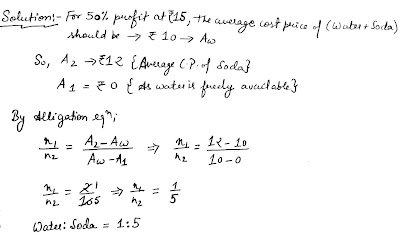 Solution:- For 50% profit at ₹15, the average cost price of (Water + Soda)
should be → ₹ 10 → Aw
So, A2 → ₹12 { Average C.P. of Soda}
A1 = ₹ 0 { As water is freely available}
By Alligation eqn,
n1/n2 = (A2 - Aw)/(Aw - A1) ⇒ n1/n2 = (12 - 10)/(10 - 0)
n1/n2 = 2 1/10 5 ⇒ n1/n2 = 1/5
Water : Soda = 1:5